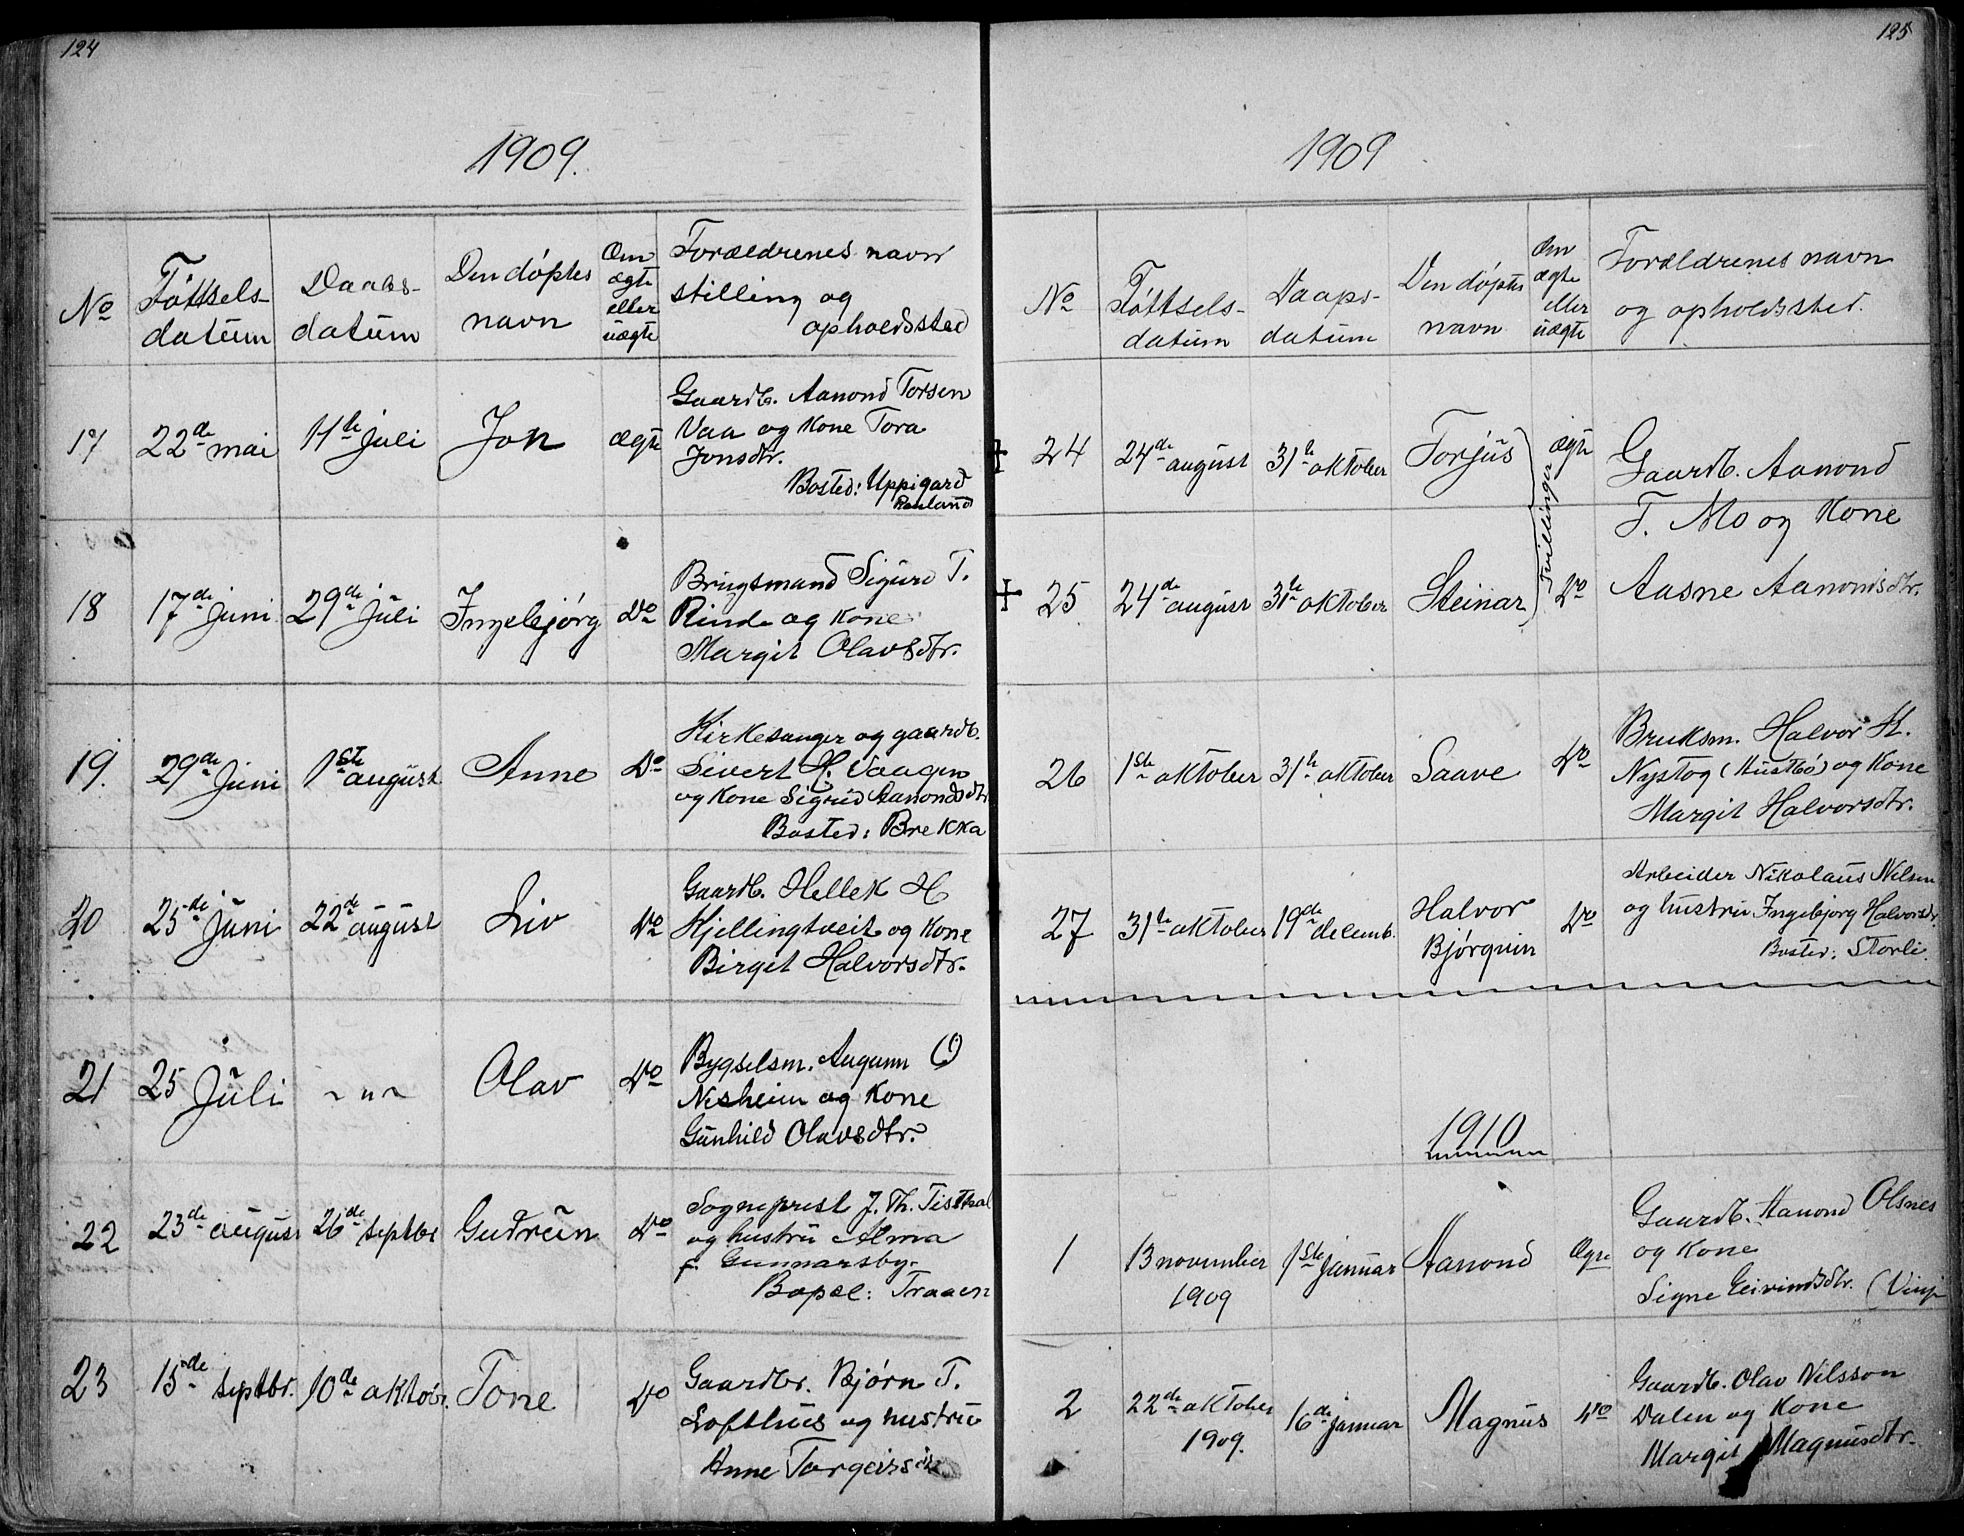 124
1909.
No
Föttsels-
datum
Daabs-
datum
Den döptes
navn
Om
ægte
eller
uægte
Forældrenes navn
stilling og
opholdssted
17
22de mai
11te juli
Jon
ægte
Gaardb. Aanond Torsen
Vaa og Kone Tora
Jonsdtr.
Bosted: Uppigard
Rauland
18
17de juni
29de juli
Ingebjørg
Do
Brugsmand Sigurd T.
Rinde og Kone
Margit Olavsdtr.
19.
29de Juni
1ste august
Anne
Do
Kirkesanger og gaardb.
Sivert H. Vaagen
og Kone Sigrid Aanondsdtr
Bosted: Brekka
20
25de Juni
22de august
Liv
Do
Gaardb. Hellek H
Kjellingtveit og Kone
Birgit Halvorsdtr.
21
25 Juli
~ " ~
Olav
Do
Bygselsm. Augunn O
Nesheim og Kone
Gunhild Olavsdtr.
22
23de august
26de septbr
Gudrun
Do
Sogneprest J. Th. Tisthal
og hustru Alma
f. Gunnarsby.
Bopæl: Traaen
23
15de septbr.
10de oktobr.
Tone
Do
Gaardbr. Bjørn T.
Lofthus og hustru
Anne Torgeirsdtr
125
1909
No
Föttsels-
datum
Daaps-
datum
Den döptes
navn
Om
ægte
eller
uægte
Forældrenes navn
og opholdssted.
+ 24
24de august
31te oktober
Torjus
ægte
Tvillinger
Gaardb. Aanond
T. Mo og Kone
Aasne Aanonsdtr.
+ 25
24de august
31te oktober
Steinar
Do
26
1ste oktober
31te oktober
Saave
Do
Bruksm. Halvor H.
Nystog (Hustbö) og Kone
Margit Halvorsdtr.
27
31te oktober
19de decemb.
Halvor
Bjørgvin
Do
Arbeider Nikolaus Nilsen
og hustru Ingebjorg Halvorsdr.
Bosted: Storli.
1910
1
13 november
1909
1ste januar
Aanond
Ægte
Gaardb. Aanond Olsnes
og Kone
Signe Eivindsdtr. (Vinje
2
22de oktober
1909.
16de januar
Magnus
Do
Gaardb. Olav Nilsson
Dalen og Kone
Margit Magnusdtr.